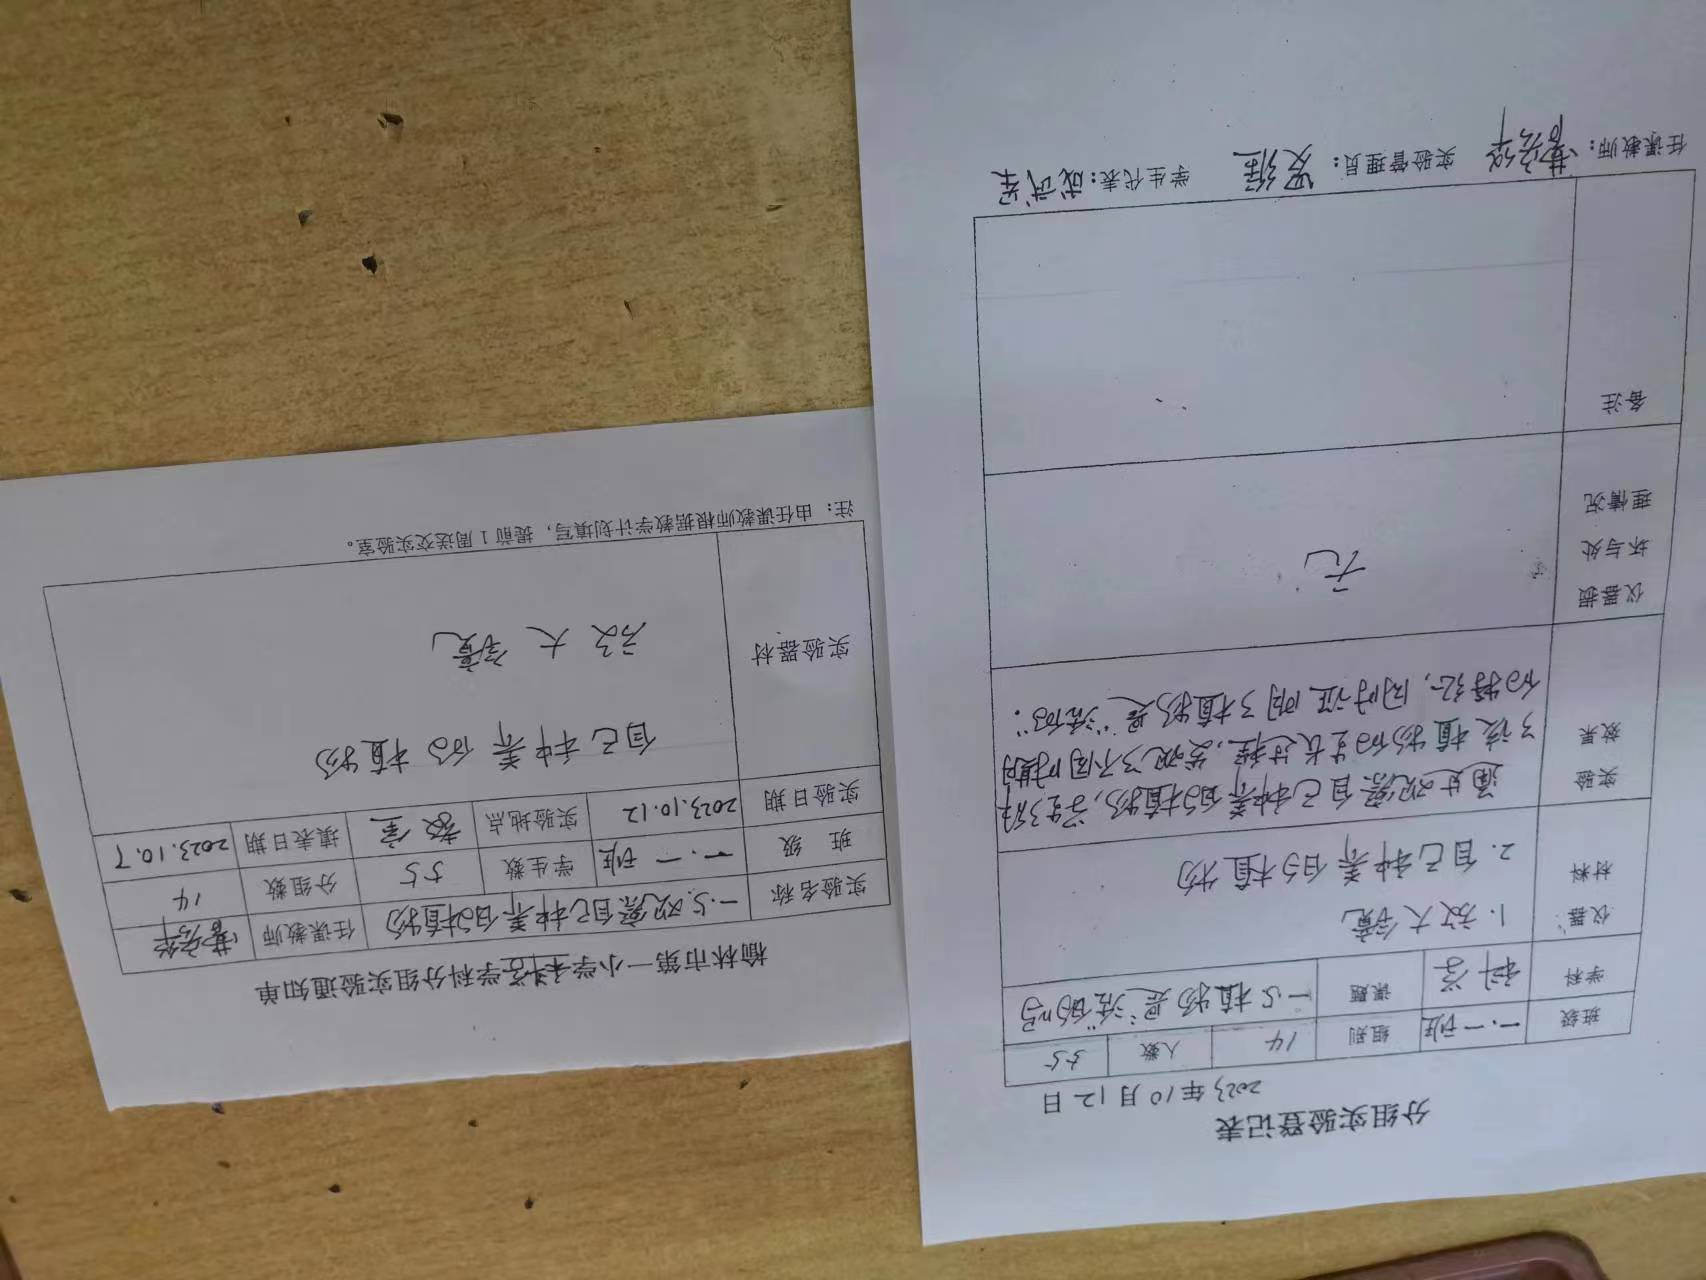 分组实验登记表
2023年10月12日
班级 一.一班 组别 14 人数 55
学科 科学 课题 一.5植物是"活"的吗
仪器
材料
1.放大镜
2.自己种养的植物
实验
效果
通过观察自己种养的植物,学生了解
了该植物的生长过程,发现了不同时期的
的特征,同时证明了植物是"活的".
仪器损
坏与处
理情况
无
备注
任课教师: 实验管理员: 学生代表:
榆林市第一小学科学学科分组实验通知单
实验名称 一.5观察自己种养的植物 任课教师
班 级 一.一班 学生数 55 分组数 14
实验日期 2023.10.12 实验地点 教室 填表日期 2023.10.7
实验器材
自己种养的植物
放大镜
注:由任课教师根据教学计划填写,提前1周送交实验室。